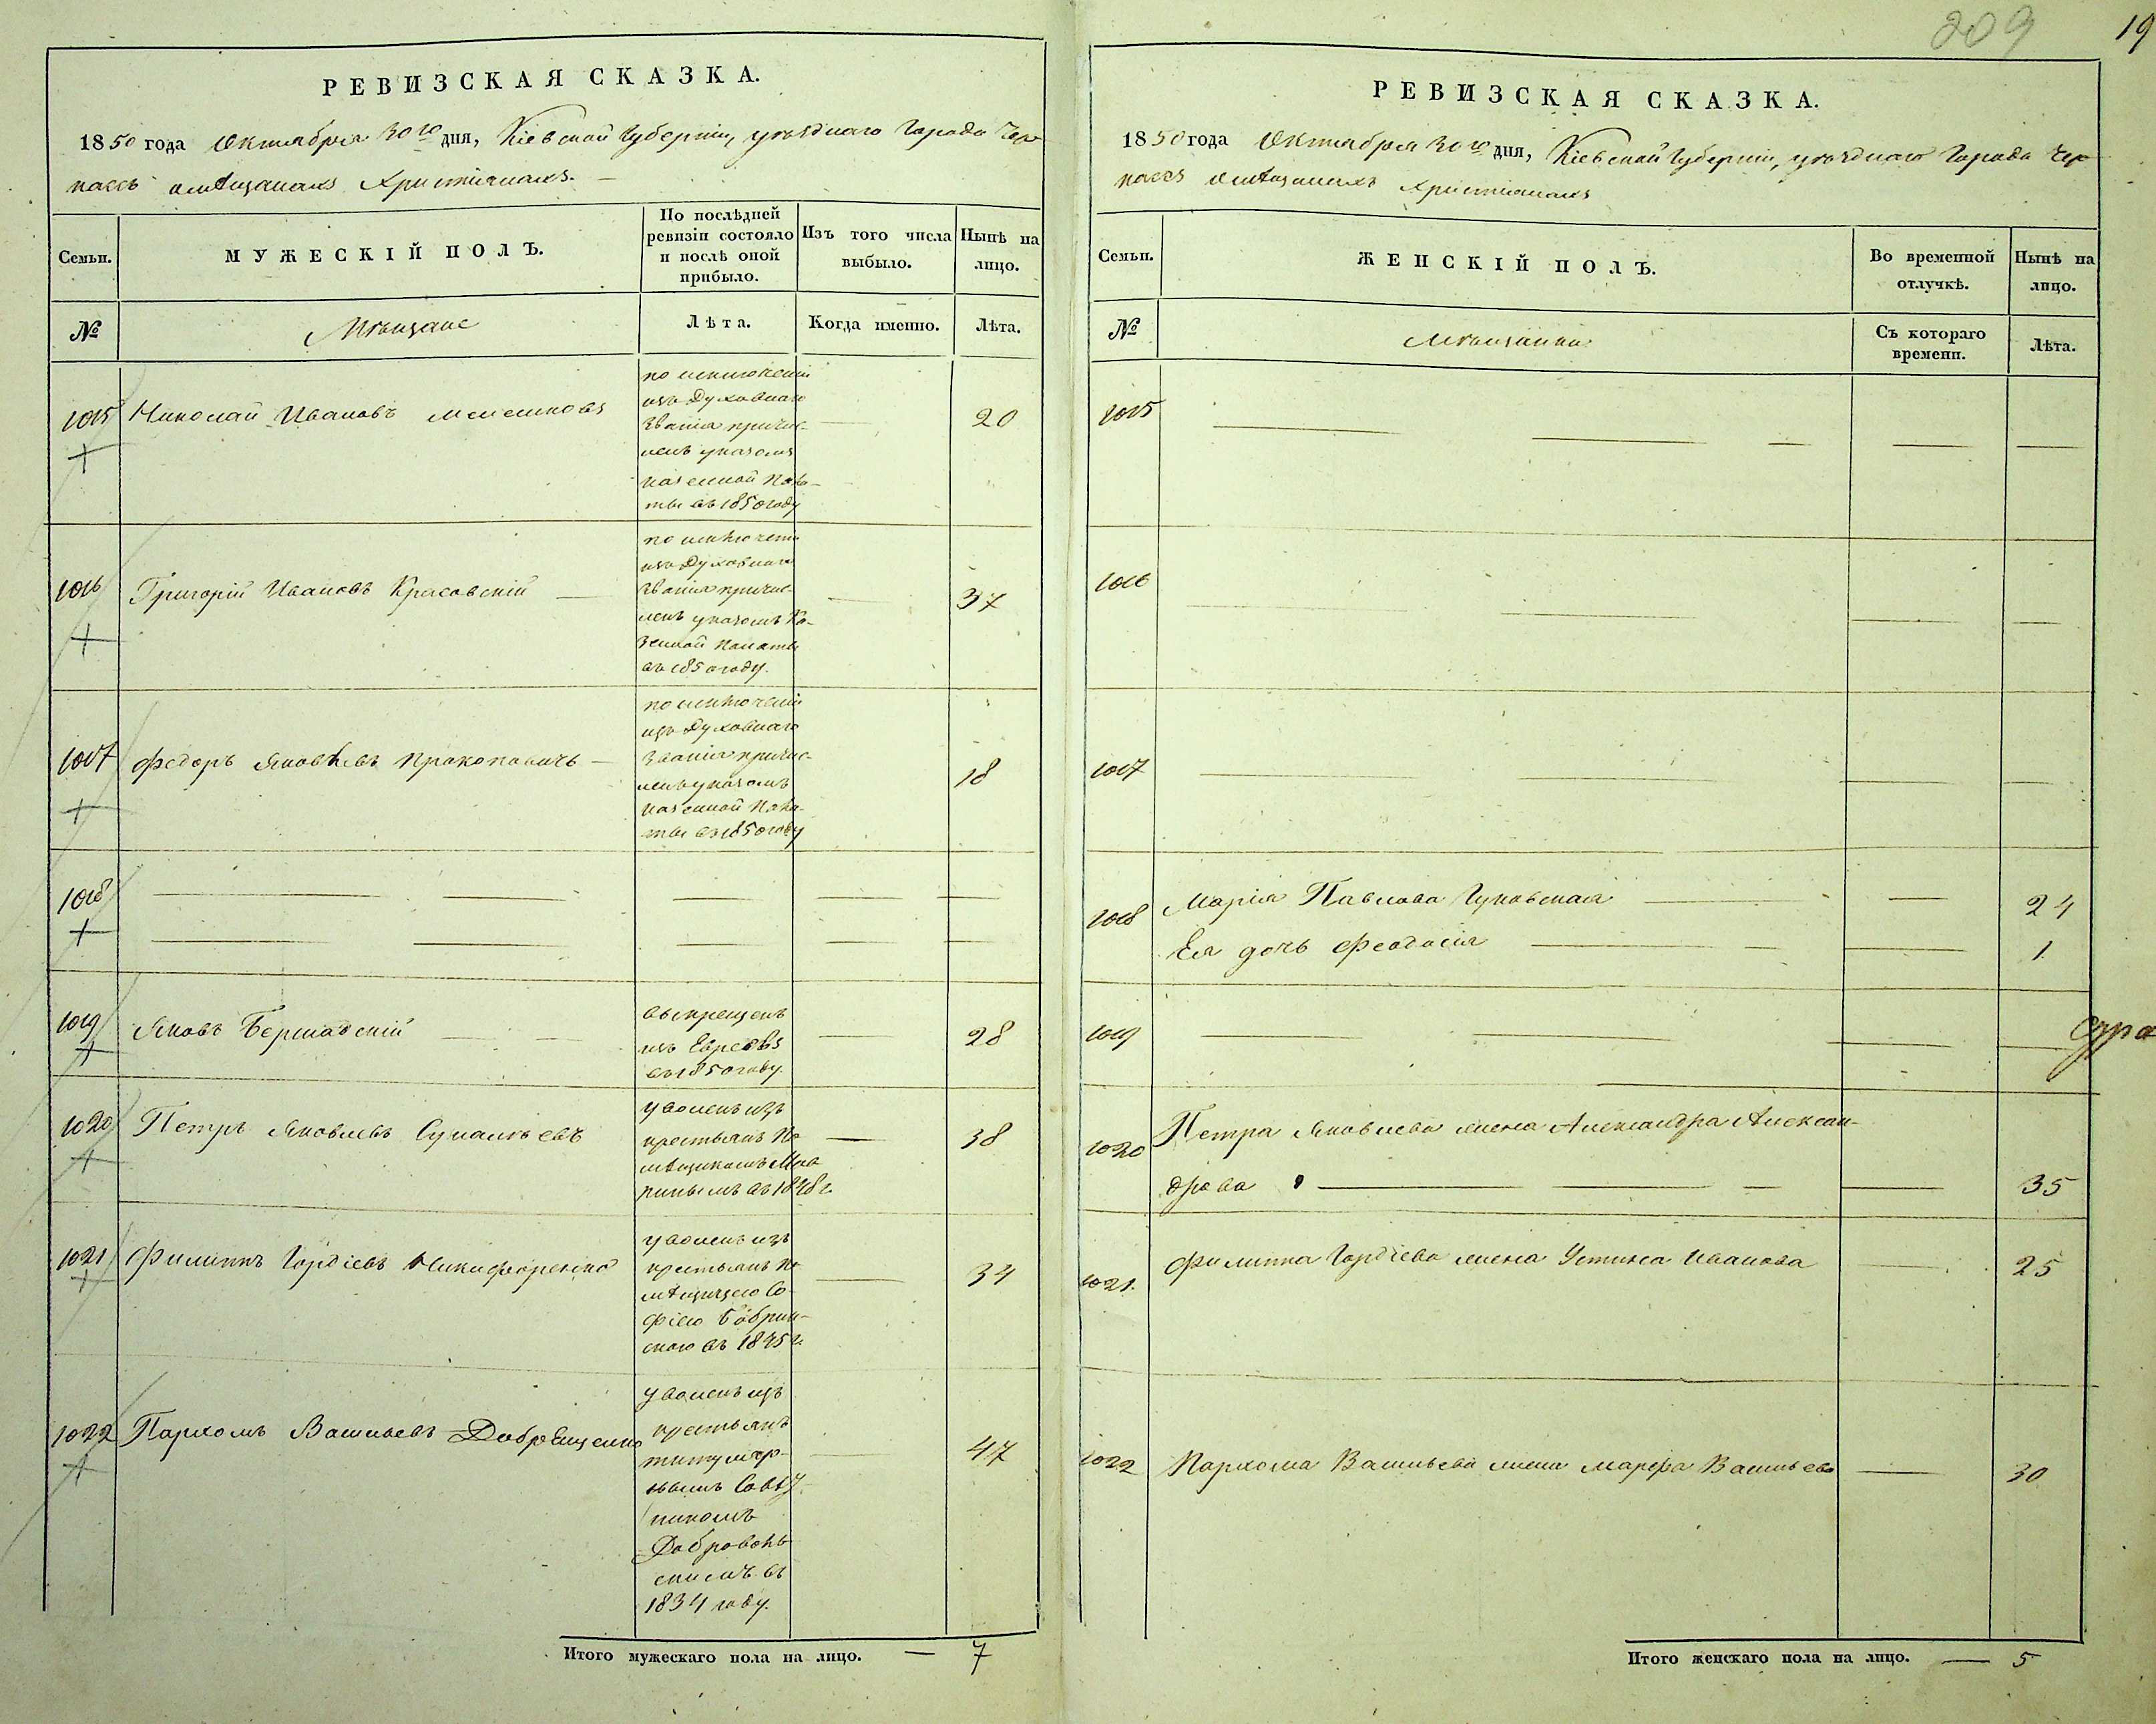 209
19
РЕВИЗСКАЯ СКАЗКА.
1850 года Октября 30го дня, Кіевской Губерніи, уѣзднаго Города Чер-
кассъ о мѣщанахъ Христіанахъ.
Семьи.
МУЖЕСКІЙ ПОЛЪ.
По послѣдней
ревизіи состояло
и послѣ оной
прибыло.
Изъ того числа
выбыло.
Нынѣ на
лицо.
№
Мѣщане
Лѣта.
Когда именно.
Лѣта.
1015
Николай Ивановъ
по исключеніи
изъ Духовнаго
званія причис-
ленъ указомъ
казенной Пала-
ты въ 1850 году
20
1016
Григорій Ивановъ Красовскій
по исключеніи
изъ Духовнаго
званія причис-
ленъ указомъ Ка-
зенной Палаты
въ 1850 году.
37
1017
Федоръ Яковлевъ Прокоповичъ
по исключеніи
изъ Духовнаго
званія причис-
ленъ указомъ
казенной Пала-
ты въ 1850 году
18
1018
1019
Яковъ Бершадскій
выкрещенъ
изъ Евреевъ
въ 1850 году.
28
1020
Петръ Яковлевъ
уволенъ изъ
крестьянъ По
мѣщикомъ
въ 1848 г.
38
1021
Филиппъ Гордіевъ Никифоренко
уволенъ изъ
крестьянъ По
мѣщицею Со-
фіею Бобрин-
скою въ 1845 г.
34
1022
Пархомъ Васильевъ Добрещенко
уволенъ изъ
крестьянъ
титуляр-
нымъ Совѣт-
никомъ
Доброволь
скимъ въ
1834 году.
47
Итого мужескаго пола на лицо. — 7
РЕВИЗСКАЯ СКАЗКА.
1850 года Октября 30го дня, Кіевской Губерніи, уѣзднаго Города Чер-
кассъ о мѣщанахъ Христіанахъ
Семьи.
ЖЕНСКІЙ ПОЛЪ.
Во временной
отлучкѣ.
Нынѣ на
лицо.
№
Мѣщанки
Съ котораго
времени.
Лѣта.
1015
1016
1017
1018
Марія Павлова Гуковская
24
Ея дочь Феодосія
1
1019
1020
Петра Яковлева жена Александра Алексан-
дрова
35
1021.
Филиппа Гордіева жена Устинья Иванова
25
1022
Пархома Васильева жена Марфа Васильева
30
Итого женскаго пола на лицо. — 5